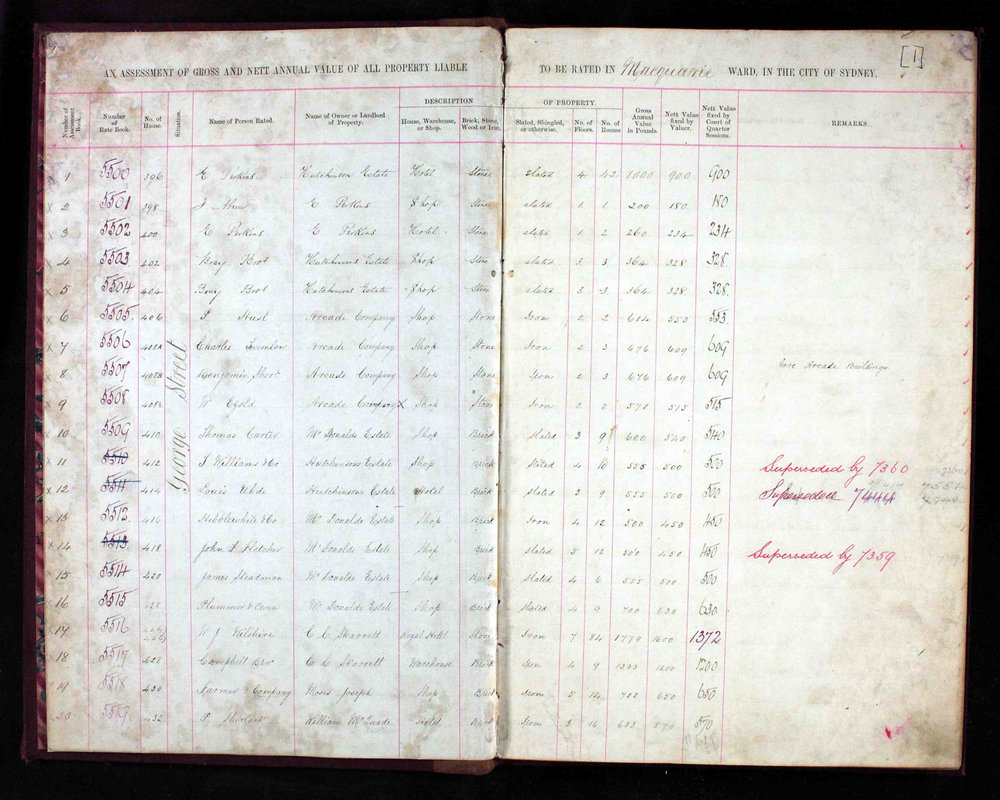 [1]
AN ASSESSMENT OF GROSS AND NETT ANNUAL VALUE OF ALL PROPERTY LIABLE TO BE RATED IN Macquarie WARD, IN THE CITY OF SYDNEY.
DESCRIPTION OF PROPERTY
Number of Assessment Book. Number of Rate Book. No. of House. Situation. Name of Person Rated. Name of Owner or Landlord of Property. House, Warehouse, or Shop. Brick, Stone, Wood or Iron. Slated, Shingled, or otherwise. No. of Floors. No. of Rooms Gross Annual Value in Pounds. Nett Value fixed by Valuer. Nett Value fixed by Court of Quarter Sessions. REMARKS.
George Street
x 1 5500 396 E Perkins Hutchinson Estate Hotel Stone slated 4 42 1000 900 900
x 2 5501 398 J E Perkins Shop Stone slated 1 1 200 180 180
x 3 5502 400 E Perkins E Perkins Hotel Stone slated 1 2 260 234 234
x 4 5503 402 Bray Bros Hutchinsons Estate Shop Stone slated 3 3 364 328 328
x 5 5504 404 Bray Bros Hutchinsons Estate Shop Stone slated 2 3 364 328 328
x 6 5505 406 Hust Arcade Company Shop Stone Iron 2 2 614 553 553
x 7 5506 408A Charles Arcade Company Shop Stone Iron 2 3 676 609 609
x 8 5507 408B Benjamin Short Arcade Company Shop Stone Iron 2 3 676 609 609 Arcade Buildings
x 9 5508 W Arcade Company x Shop Stone Iron 2 2 572 515 515
x 10 5509 410 Thomas Carter Mc Donalds Estate Shop Brick Slated 3 9 600 540 540
x 11 5510 412 J Williams & Co Hutchinsons Estate Shop Brick Slated 4 10 555 500 500 Superseded by 7360
x 12 5511 414 Louis Uhde Hutchinsons Estate Hotel Brick slated 3 9 555 500 500 Superseded 7444
x 13 5512 416 Hebblewhite & Co Mc Donalds Estate Shop Brick Iron 4 12 500 450 450
x 14 5513 418 John F Fletcher Mc Donalds Estate Shop Brick slated 5 12 500 450 450 Superseded by 7359
x 15 5514 420 James Steadman Mc Donalds Estate Shop Brick slated 4 6 555 500 500
x 16 5515 422 Plummer & Owen Mc Donalds Estate Shop Brick slated 4 9 700 630 630
x 17 5516 424 426 W J Wilshire C C Skarrett Royal Hotel Stone Iron 7 84 1770 1600 1372
x 18 5517 428 Campbell Bros C C Skarrett Warehouse Brick Iron 4 9 1333 1200 1200
x 19 5518 430 Farmer & Company Moses Joseph Shop Brick Iron 5 14 722 650 650
x 20 5519 432 William Mc Quade Hotel Brick Iron 3 16 633 570 570